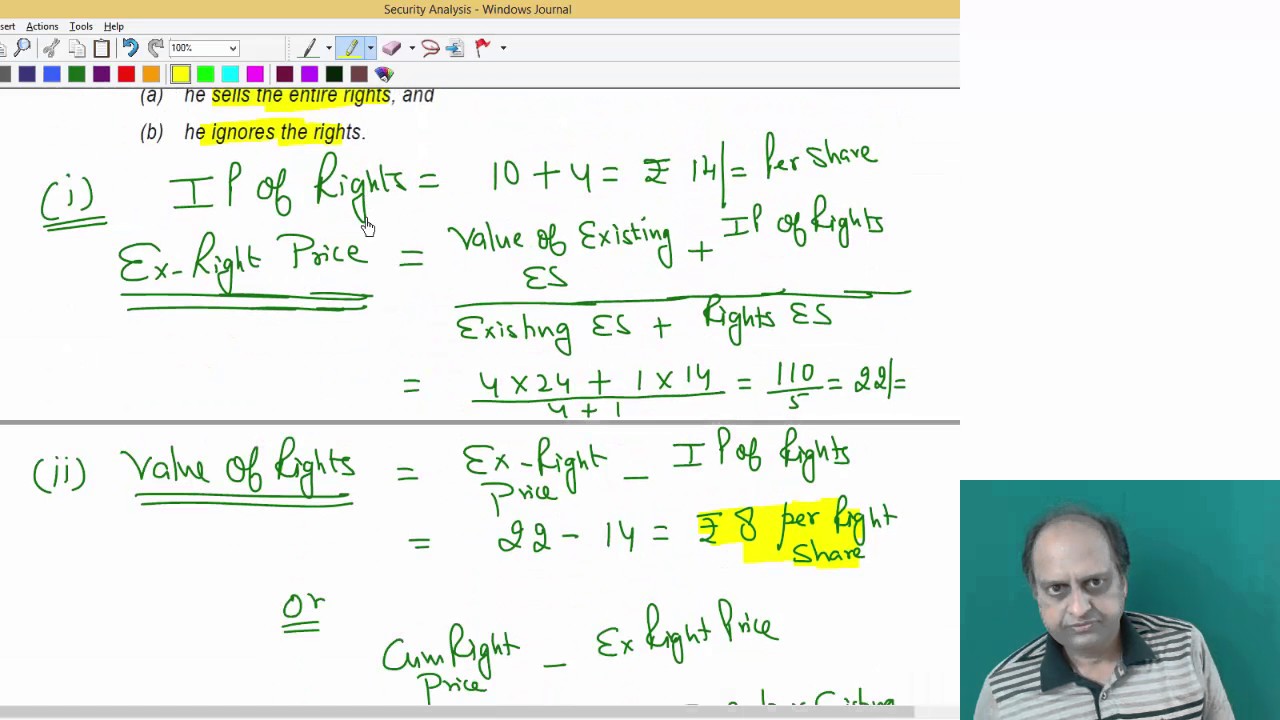 Security Analysis - Windows Journal
sert Actions Tools Help
100%
(a) he sells the entire rights, and
(b) he ignores the rights.
(i) IP of Rights = 10 + 4 = ₹ 14/= Per Share
Ex-Right Price = Value of Existing ES + IP of Rights
Existing ES + Rights ES
= 4 × 24 + 1 × 14 = 110 = 22/=
4 + 1 5
(ii) Value of Rights = Ex-Right Price - IP of Rights
= 22 - 14 = ₹ 8 per Right Share
Or
Cum Right Price - Ex Right Price